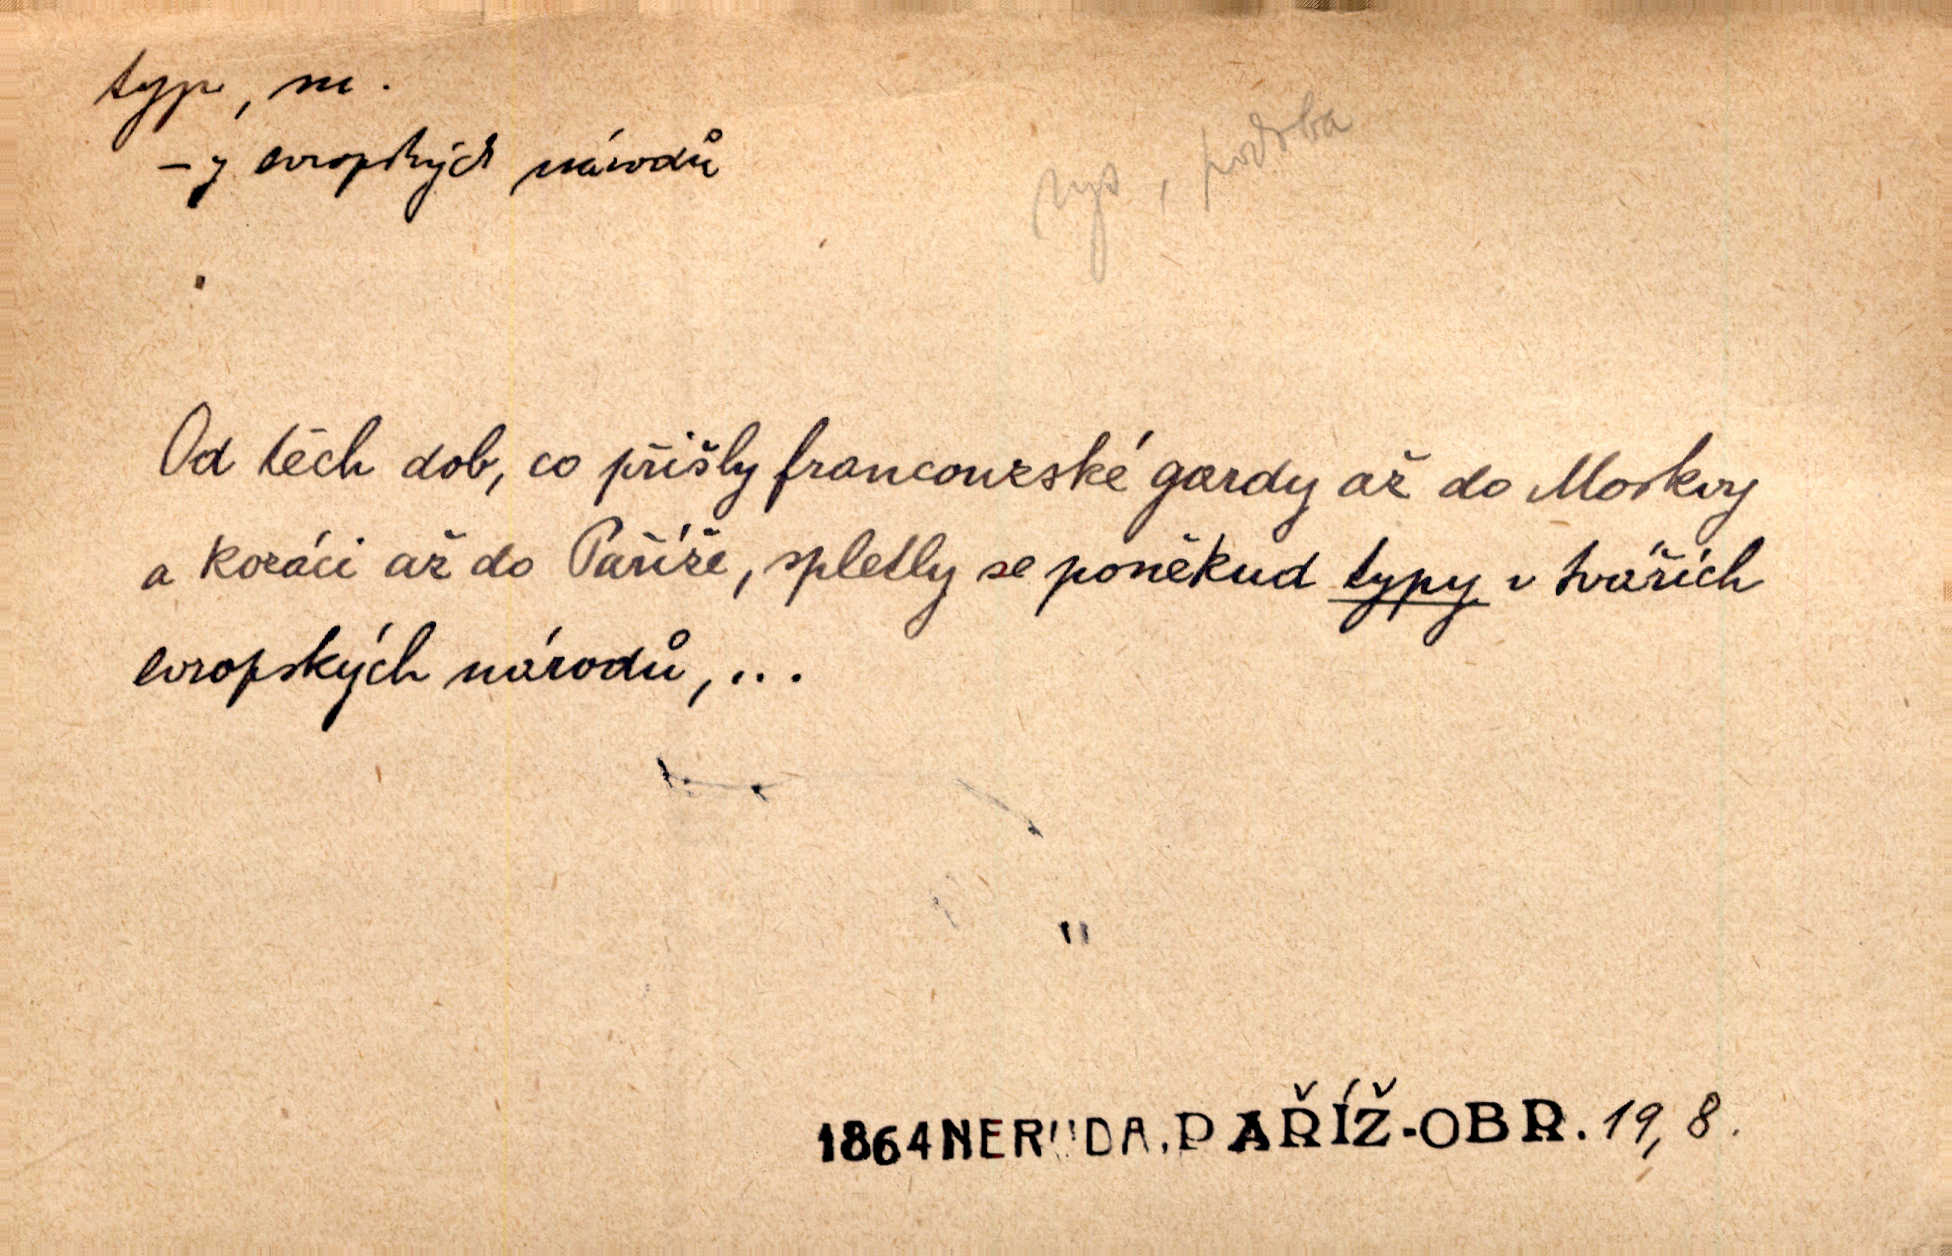 typ, m.
-y evropských národů
rys, podoba
Od těch dob, co přišly francouzské gardy až do Moskvy
a kozáci až do Paříže, spletly se poněkud typy v tvářích
evropských národů, ...
1864 NERUDA, PAŘÍŽ-OBR. 19, 8.